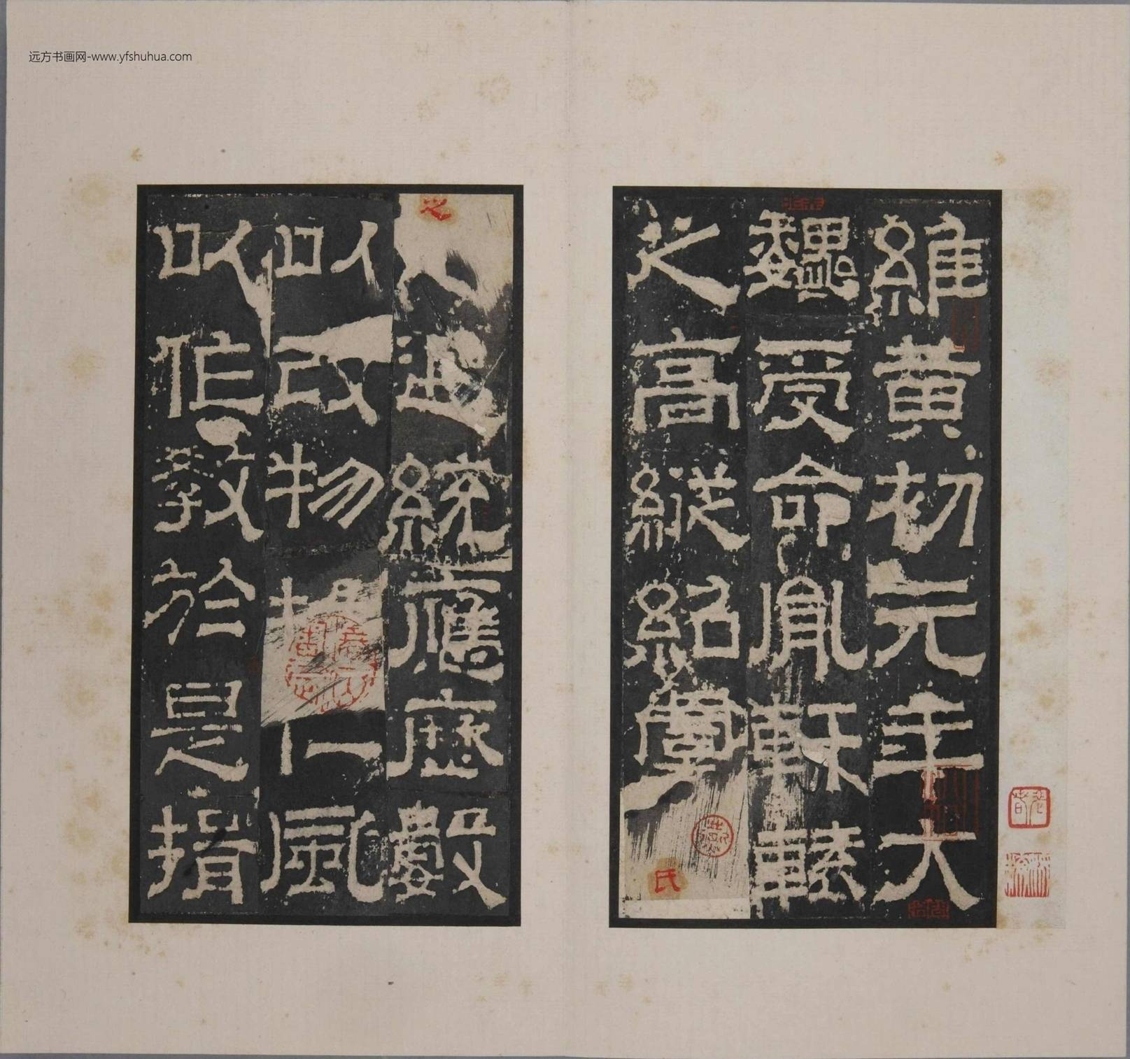 远方书画网-www.yfshuhua.com
維黃初元年大
魏受命胤軒轅
之高縱紹虞氏
之遐統應歷數
以改物揚仁風
以作教於是揖